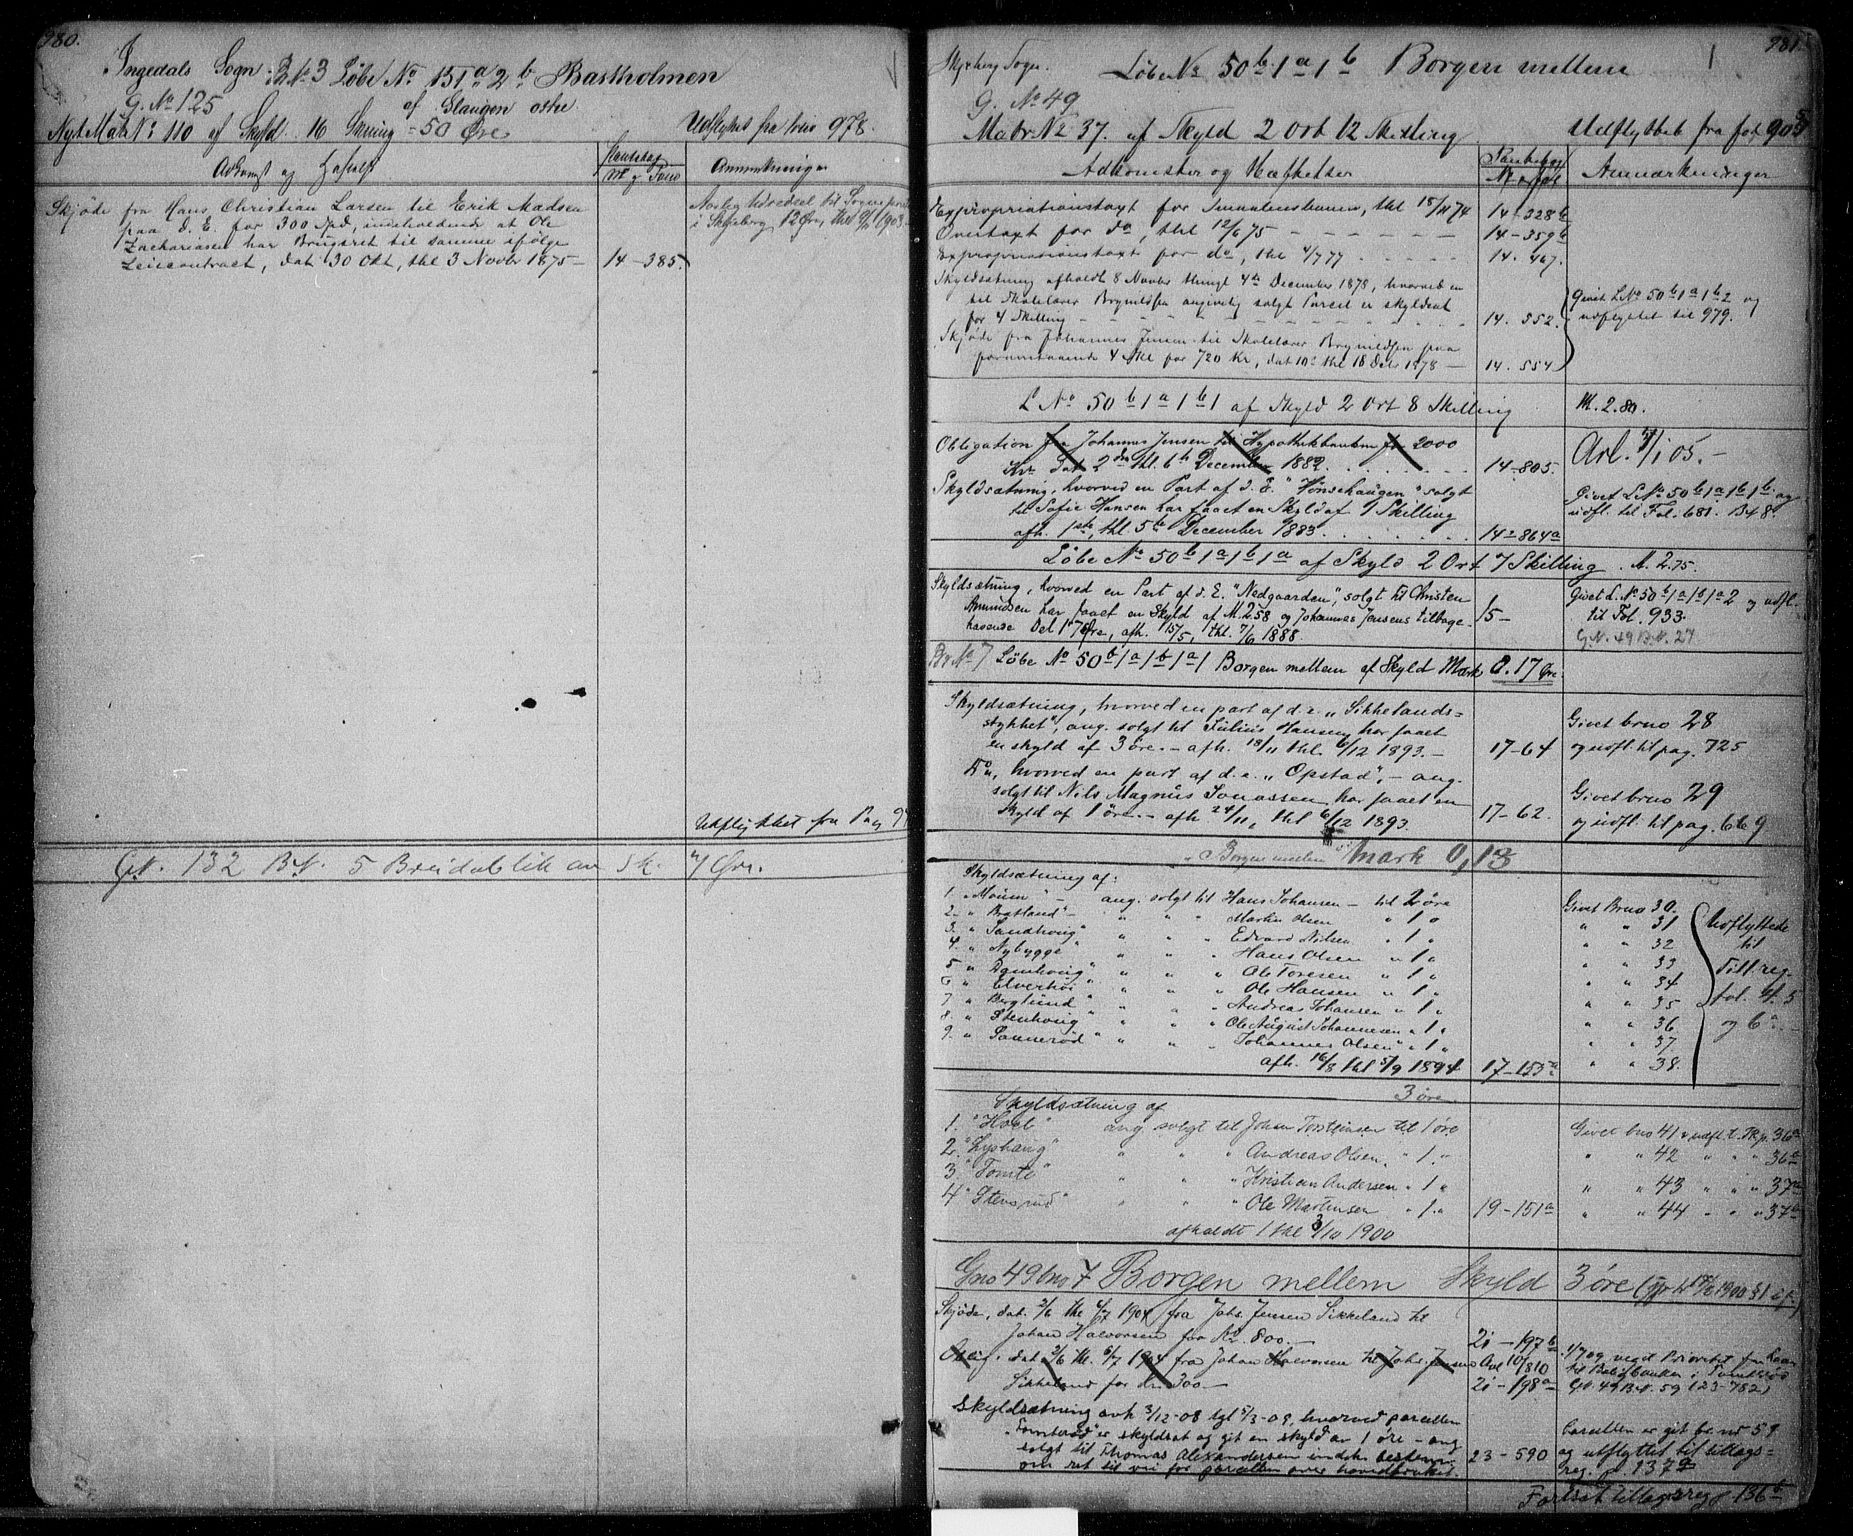 980.
Ingedals Sogn. B.No 3 Löbe No 151 a 2 b Bastholmen
G. No 125 af Slaugen ostre
Nyt Matr No 110 af Skyld 16 Skning = 50 Øre Udflyttet fra 978.
Adkomst og Hæftelse
M og Folio
Anmærkninger
Skjöde fra Hans Christian Larsen til Erik Madsen
paa d. E. for 300 Spd, indeholdende at Ole
Zachariasen har Brugsret til samme ifølge
Leiecontract, dat 30 Okt, thl 3 Novbr 1875 – 14 – 385.
i Skjeberg 12 Øre, thl 1903.
Udflyttet fra Pag
Gn. 132 Bn. 5 Breidablik av Sk. 7 Øre.
981
Skjeberg Sogn. Löbe No 50 b 1 a 1 b Borgen mellem
G. No 49
Matr No 37. af Skyld 2 Ort 12 Skilling Udflyttet fra fol. 905
Adkomster og Hæftelser
Pantebog
No og fol
Anmærkninger
Expropriationstaxt for Smaalensbanen, thl 18/11 74 14 – 328 b
Overtaxt for do, thl 12/6 75 – – – 14 – 359 b
Expropriationstaxt for do, thl 4/7 77 – – – 14. 467.
Skyldsætning afholdt 8 Novbr thingl 4de December 1878, hvorved en
til Skolelærer Brynildsen angivelig solgt Parcel er skyldsat
for 4 Skilling – – – 14. 552.
Givet L No 50 b 1 a 1 b 2 og
udflyttet til 979.
Skjöde fra Johannes Jensen til Skolelærer Brynildsen paa
foranstaaende 4 Skl for 720 Kr, dat 10de thl 18 Dcbr 1878 – 14. 554
L No 50 b 1 a 1 b 1 af Skyld 2 Ort 8 Skilling M. 2.80.
Obligation fra Johannes Jensen til Hypothekbanken for 2000
Kr. Dat 2den thl. 6te December 1882. 14 – 805. Avl. 1/1 05. –
Skyldsætning, hvorved en Part af d. E. "Hönsehaugen" solgt
til Sofie Hansen har faaet en Skyld af 1 Skilling
afh. 1ste, thl 5te December 1883. 14 – 864 a
Givet L No 50 b 1 a 1 b 1 b og
udfl. til Fol. 681. B 8.
Löbe No 50 b 1 a 1 b 1 a af Skyld 2 Ort 7 Skilling. M. 2.75.
Skyldsætning, hvorved en Part af d. E. "Nedgaarden", solgt til Christen
Amundsen har faaet en Skyld af M. 2.58 og Johannes Jensens tilbage-
havende Del 17 Øre, afh. 15/5, thl. 7/6 1888. 15 –
Givet L. No 50 b 1 a 1 b 1 a 2 og udfl.
til Fol. 933.
G.N. 49 B.N. 27
Br No 7 Löbe No 50 b 1 a 1 b 1 a 1 Borgen mellem af Skyld Mark 0.17 Øre
Skyldsætning, hvorved en part af d. e. „Sikkelands-
stykket", ang. solgt til Julius Hansen har faaet
en skyld af 3 öre. – afh. 18/11 thl. 6/12 1893. – 17 – 64
Givet bruo 28
og udfl. til pag. 725
Do, hvorved en part af d. e. „Opstad", – ang.
solgt til Nils Magnus Jonassen har faaet en
Skyld af 1 öre. – afh 24/11, thl 6/12 1893. 17 – 62.
Givet bruo 29
og udfl. til pag. 669
„Borgen mellem mark 0,13
Skyldsætning af:
1. „Mörum" – ang. solgt til Hans Johansen – til 2 öre Givet Bruo 30.
2. „Bratland" – " " Martin Olsen " 1 " " " 31
3. „Sandhoug" " " " Edvard Nilsen " 1 " " " 32
4. „Nybygge" " " " Hans Olsen " 1 " " " 33
5 „Damhoug" " " " Ole Toresen " 1 " " " 34
6 „Elverhöi" " " " Ole Hansen " 1 " " " 35
7 „Berglund" " " " Andreas Johansen " 1 " " " 36
8. „Stenhoug" " " " Ole August Johannesen " 1 " " " 37
9. „Sannerød" " " " Johannes Olsen " 1 " " " 38.
afh. 16/8 thl 5/9 1894 17 – 155 a
Udflyttede
til
Till. reg.
fol. 4, 5
og 6
3 öre
Skyldsætning af
1. "Hvel" ang. solgt til Johan Torstensen til 1 öre Givet bno 41 udfl. t. Tk p. 36 a
2. "Lyshaug" " " " Andreas Olsen " 1. " " " 42 " " " 36 a
3. "Tomte" " " " Kristian Andersen " 1 " " " 43 " " " 37 a
4 "Stensrud" " " " Ole Martinsen " 1. " 19 – 151 a " " 44 " " " 37 b
afholdt 1 thl 3/10 1900
Gno 49 bno 7 Borgen mellem Skyld 3 öre
Skjöde, dat. 2/6 thl 6/7 1904 fra Johs. Jensen Sikkeland til
Johan Halvorsen for Kr. 800. – 20 – 197 b
Oblig. dat 2/6 thl. 6/7 1904 fra Johan Halvorsen til Johs. Jensen Avl 10/8 10
Sikkeland for Kr. 300 – 20 – 198 a
Gn. 49 Bn. 59 (23 – 752)
Skyldsætning avh 3/12 – 08 tgl 5/3 – 09, hvorved parcellen
„Tomteröd" er skyldsat og git en skyld av 1 öre – ang
solgt til Thomas Alexandersen indeh. bestem
om ret til vei for parcellen over hovedbruket. 23 – 590
Parcellen er git br. nr 59
og utflyttet til tillægs-
reg. p. 137 a
Fortsat tillægsreg p 136 b